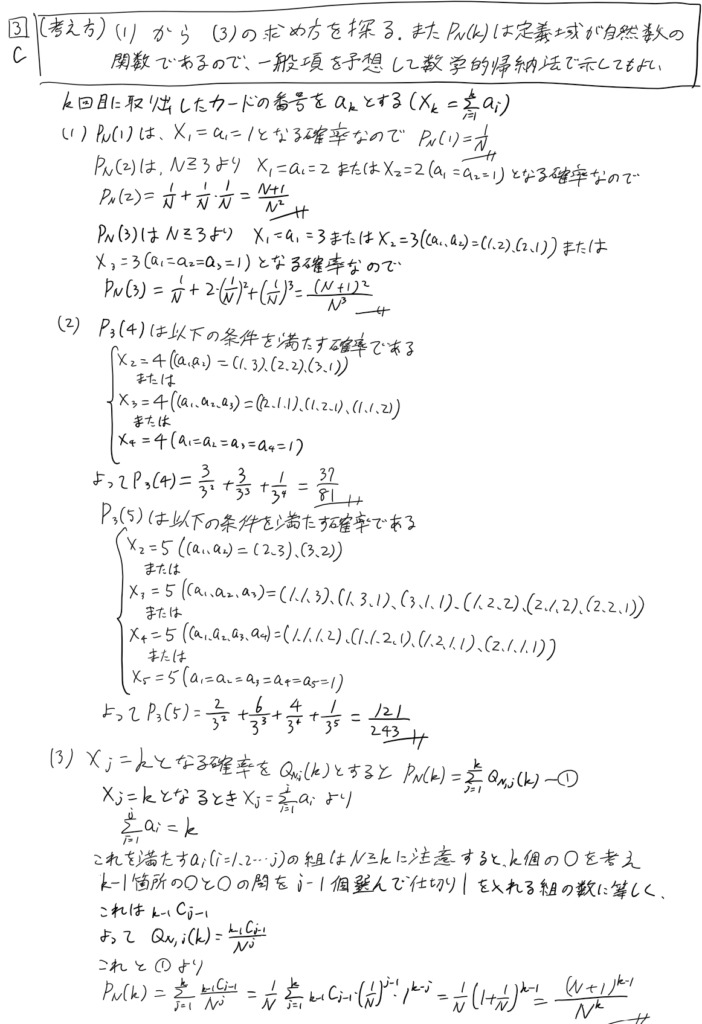 3 (考え方) (1) から (3)の求め方を探る. また P_N(k)は定義域が自然数の
C 関数であるので、一般項を予想して数学的帰納法で示してもよい
k回目に取り出したカードの番号を a_kとする (X_k = Σ_{i=1}^{k} a_i)
(1) P_N(1) は、X_1=a_1=1となる確率なので P_N(1)=1/N
P_N(2)は、N≧3より X_1=a_1=2 または X_2=2 (a_1=a_2=1) となる確率なので
P_N(2) = 1/N + 1/N・1/N = (N+1)/N^2
P_N(3)は N≧3より X_1=a_1=3または X_2=3((a_1,a_2)=(1,2),(2,1)) または
X_3=3(a_1=a_2=a_3=1)となる確率なので
P_N(3) = 1/N + 2・(1/N)^2+(1/N)^3 = (N+1)^2/N^3
(2) P_3(4)は以下の条件を満たす確率である
X_2=4 ((a_1,a_2) = (1,3),(2,2),(3,1))
または
X_3=4((a_1,a_2,a_3)=((2,1,1),(1,2,1),(1,1,2))
または
X_4=4(a_1=a_2=a_3=a_4=1)
よって P_3(4) = 3/3^2 + 3/3^3 + 1/3^4 = 37/81
P_3(5)は以下の条件を満たす確率である
X_2=5 ((a_1,a_2) = (2,3),(3,2))
または
X_3=5 ((a_1,a_2,a_3)=(1,1,3),(1,3,1),(3,1,1),(1,2,2),(2,1,2),(2,2,1))
または
X_4=5 ((a_1,a_2,a_3,a_4)=(1,1,1,2),(1,1,2,1),(1,2,1,1),(2,1,1,1))
または
X_5=5 (a_1=a_2=a_3=a_4=a_5=1)
よって P_3(5) = 2/3^2 + 6/3^3 + 4/3^4 + 1/3^5 = 121/243
(3) X_j=kとなる確率を Q_{N,j}(k)とすると P_N(k)=Σ_{j=1}^{k} Q_{N,j}(k) ―①
X_j=kとなるとき X_j=Σ_{i=1}^{j} a_i より
Σ_{i=1}^{j} a_i = k
これを満たすa_i(i=1,2…j)の組は N≧kに注意すると、k個の○を考え
k-1箇所の○と○の間を j-1個選んで仕切り | を入れる組の数に等しく、
これは _{k-1}C_{j-1}
よって Q_{N,j}(k)=_{k-1}C_{j-1}/N^j
これと①より
P_N(k) = Σ_{j=1}^{k} _{k-1}C_{j-1}/N^j = 1/N Σ_{j=1}^{k} _{k-1}C_{j-1}・(1/N)^{j-1}・1^{k-j} = 1/N (1+1/N)^{k-1} = (N+1)^{k-1}/N^k